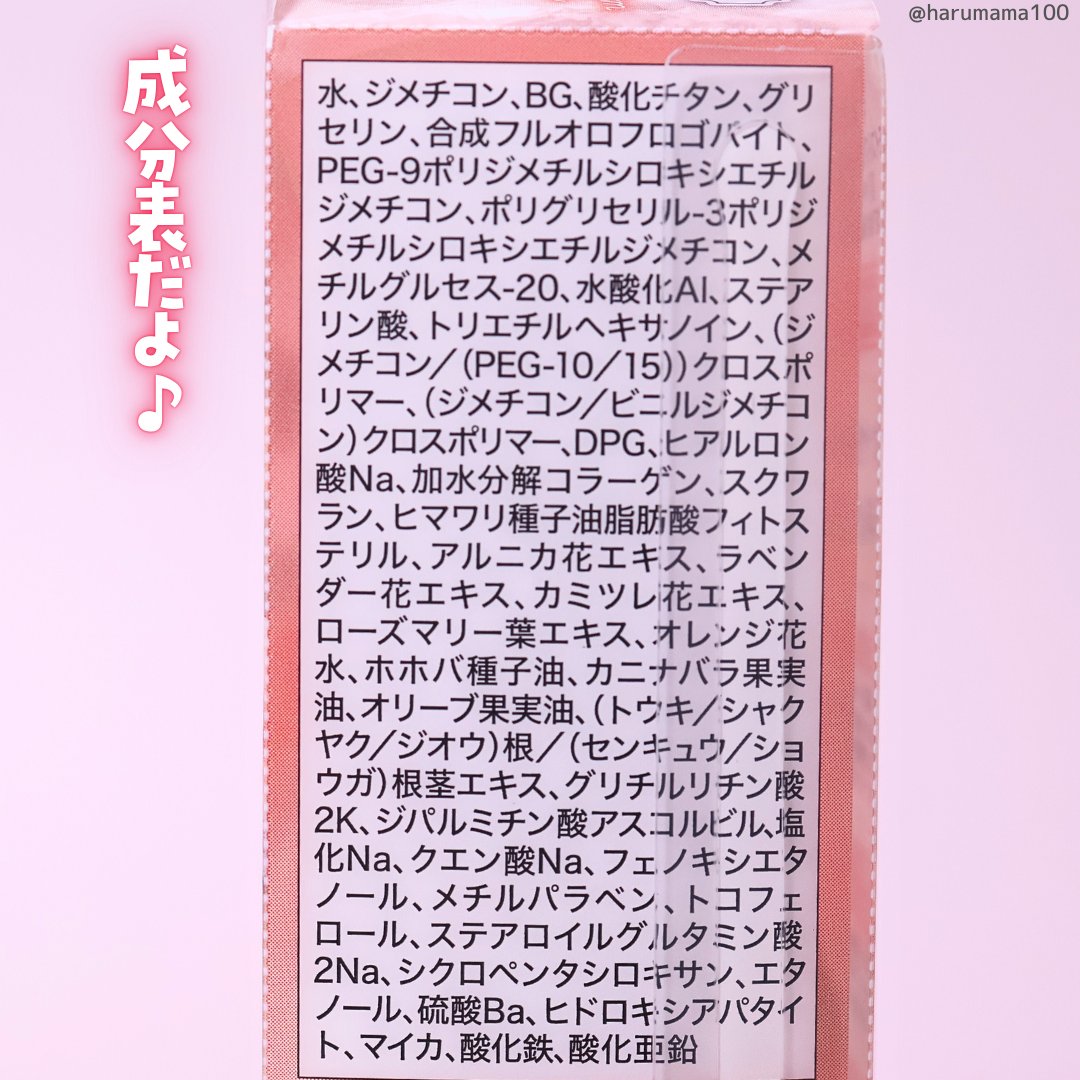 @harumama100
成分表だよ♪
水、ジメチコン、BG、酸化チタン、グリ
セリン、合成フルオロフロゴパイト、
PEG-9ポリジメチルシロキシエチル
ジメチコン、ポリグリセリル-3ポリジ
メチルシロキシエチルジメチコン、メ
チルグルセス-20、水酸化Al、ステア
リン酸、トリエチルヘキサノイン、(ジ
メチコン/(PEG-10/15))クロスポ
リマー、(ジメチコン/ビニルジメチコ
ン)クロスポリマー、DPG、ヒアルロン
酸Na、加水分解コラーゲン、スクワ
ラン、ヒマワリ種子油脂肪酸フィトス
テリル、アルニカ花エキス、ラベン
ダー花エキス、カミツレ花エキス、
ローズマリー葉エキス、オレンジ花
水、ホホバ種子油、カニナバラ果実
油、オリーブ果実油、(トウキ/シャク
ヤク/ジオウ)根/(センキュウ/ショ
ウガ)根茎エキス、グリチルリチン酸
2K、ジパルミチン酸アスコルビル、塩
化Na、クエン酸Na、フェノキシエタ
ノール、メチルパラベン、トコフェ
ロール、ステアロイルグルタミン酸
2Na、シクロペンタシロキサン、エタ
ノール、硫酸Ba、ヒドロキシアパタイ
ト、マイカ、酸化鉄、酸化亜鉛